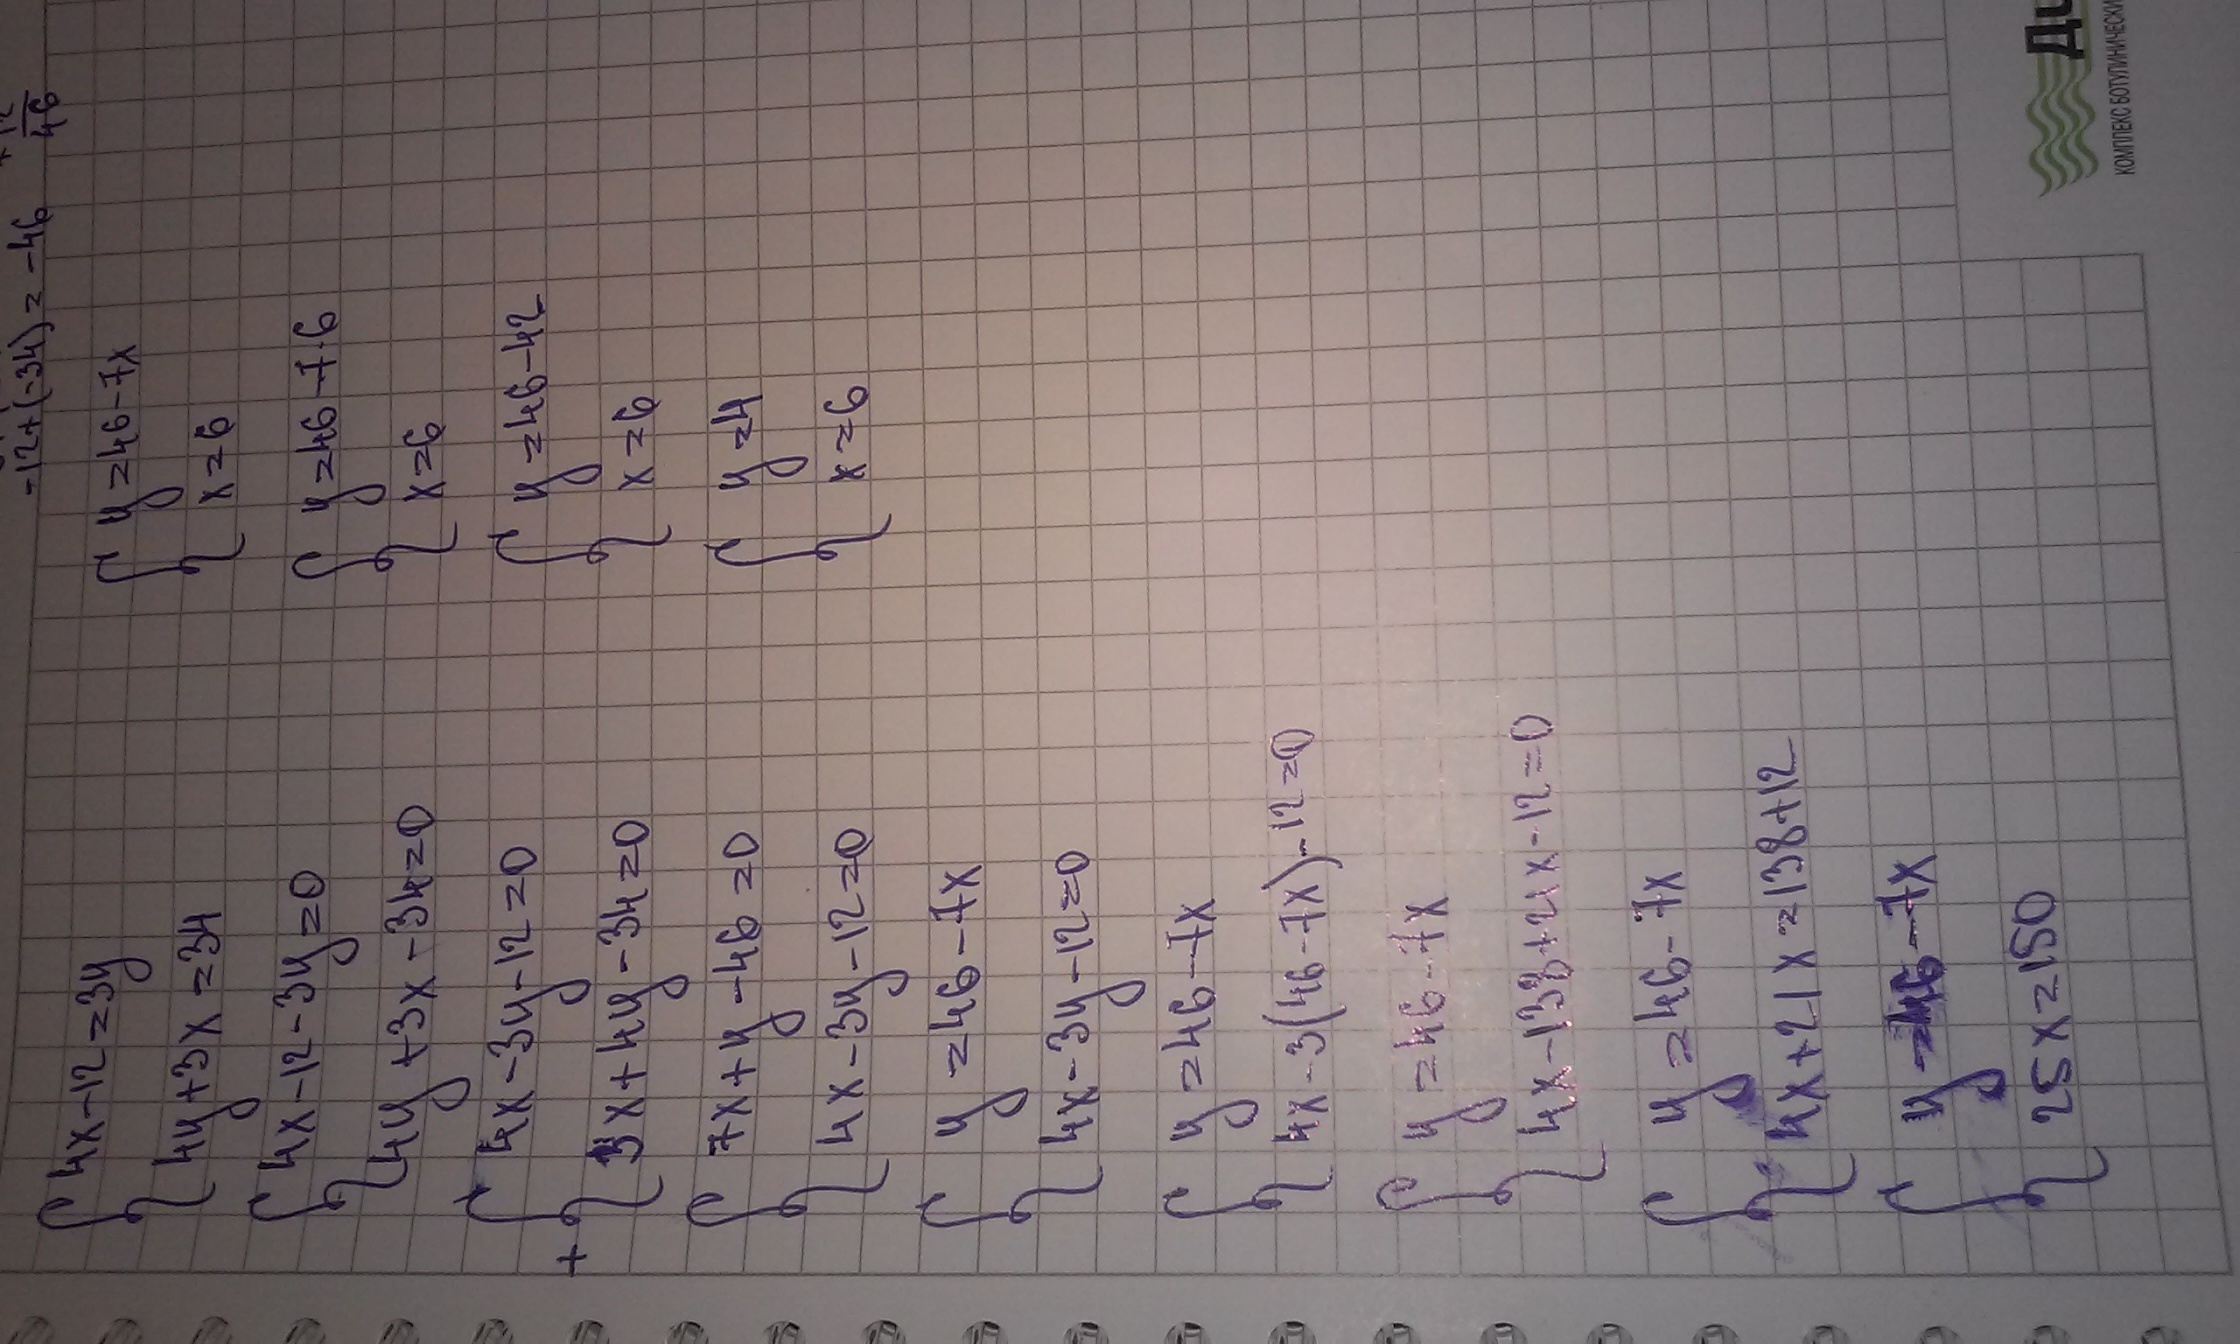 4x-12=3y
4y+3x=34
4x-12-3y=0
4y+3x-34=0
4x-3y-12=0
+ 3x+4y-34=0
7x+y-46=0
4x-3y-12=0
y=46-7x
4x-3y-12=0
y=46-7x
4x-3(46-7x)-12=0
y=46-7x
4x-138+21x-12=0
y=46-7x
4x+21x=138+12
y=46-7x
25x=150
-12+(-34)=-46
+12
46
y=46-7x
x=6
y=46-7·6
x=6
y=46-42
x=6
y=4
x=6
КОМПЛЕКС